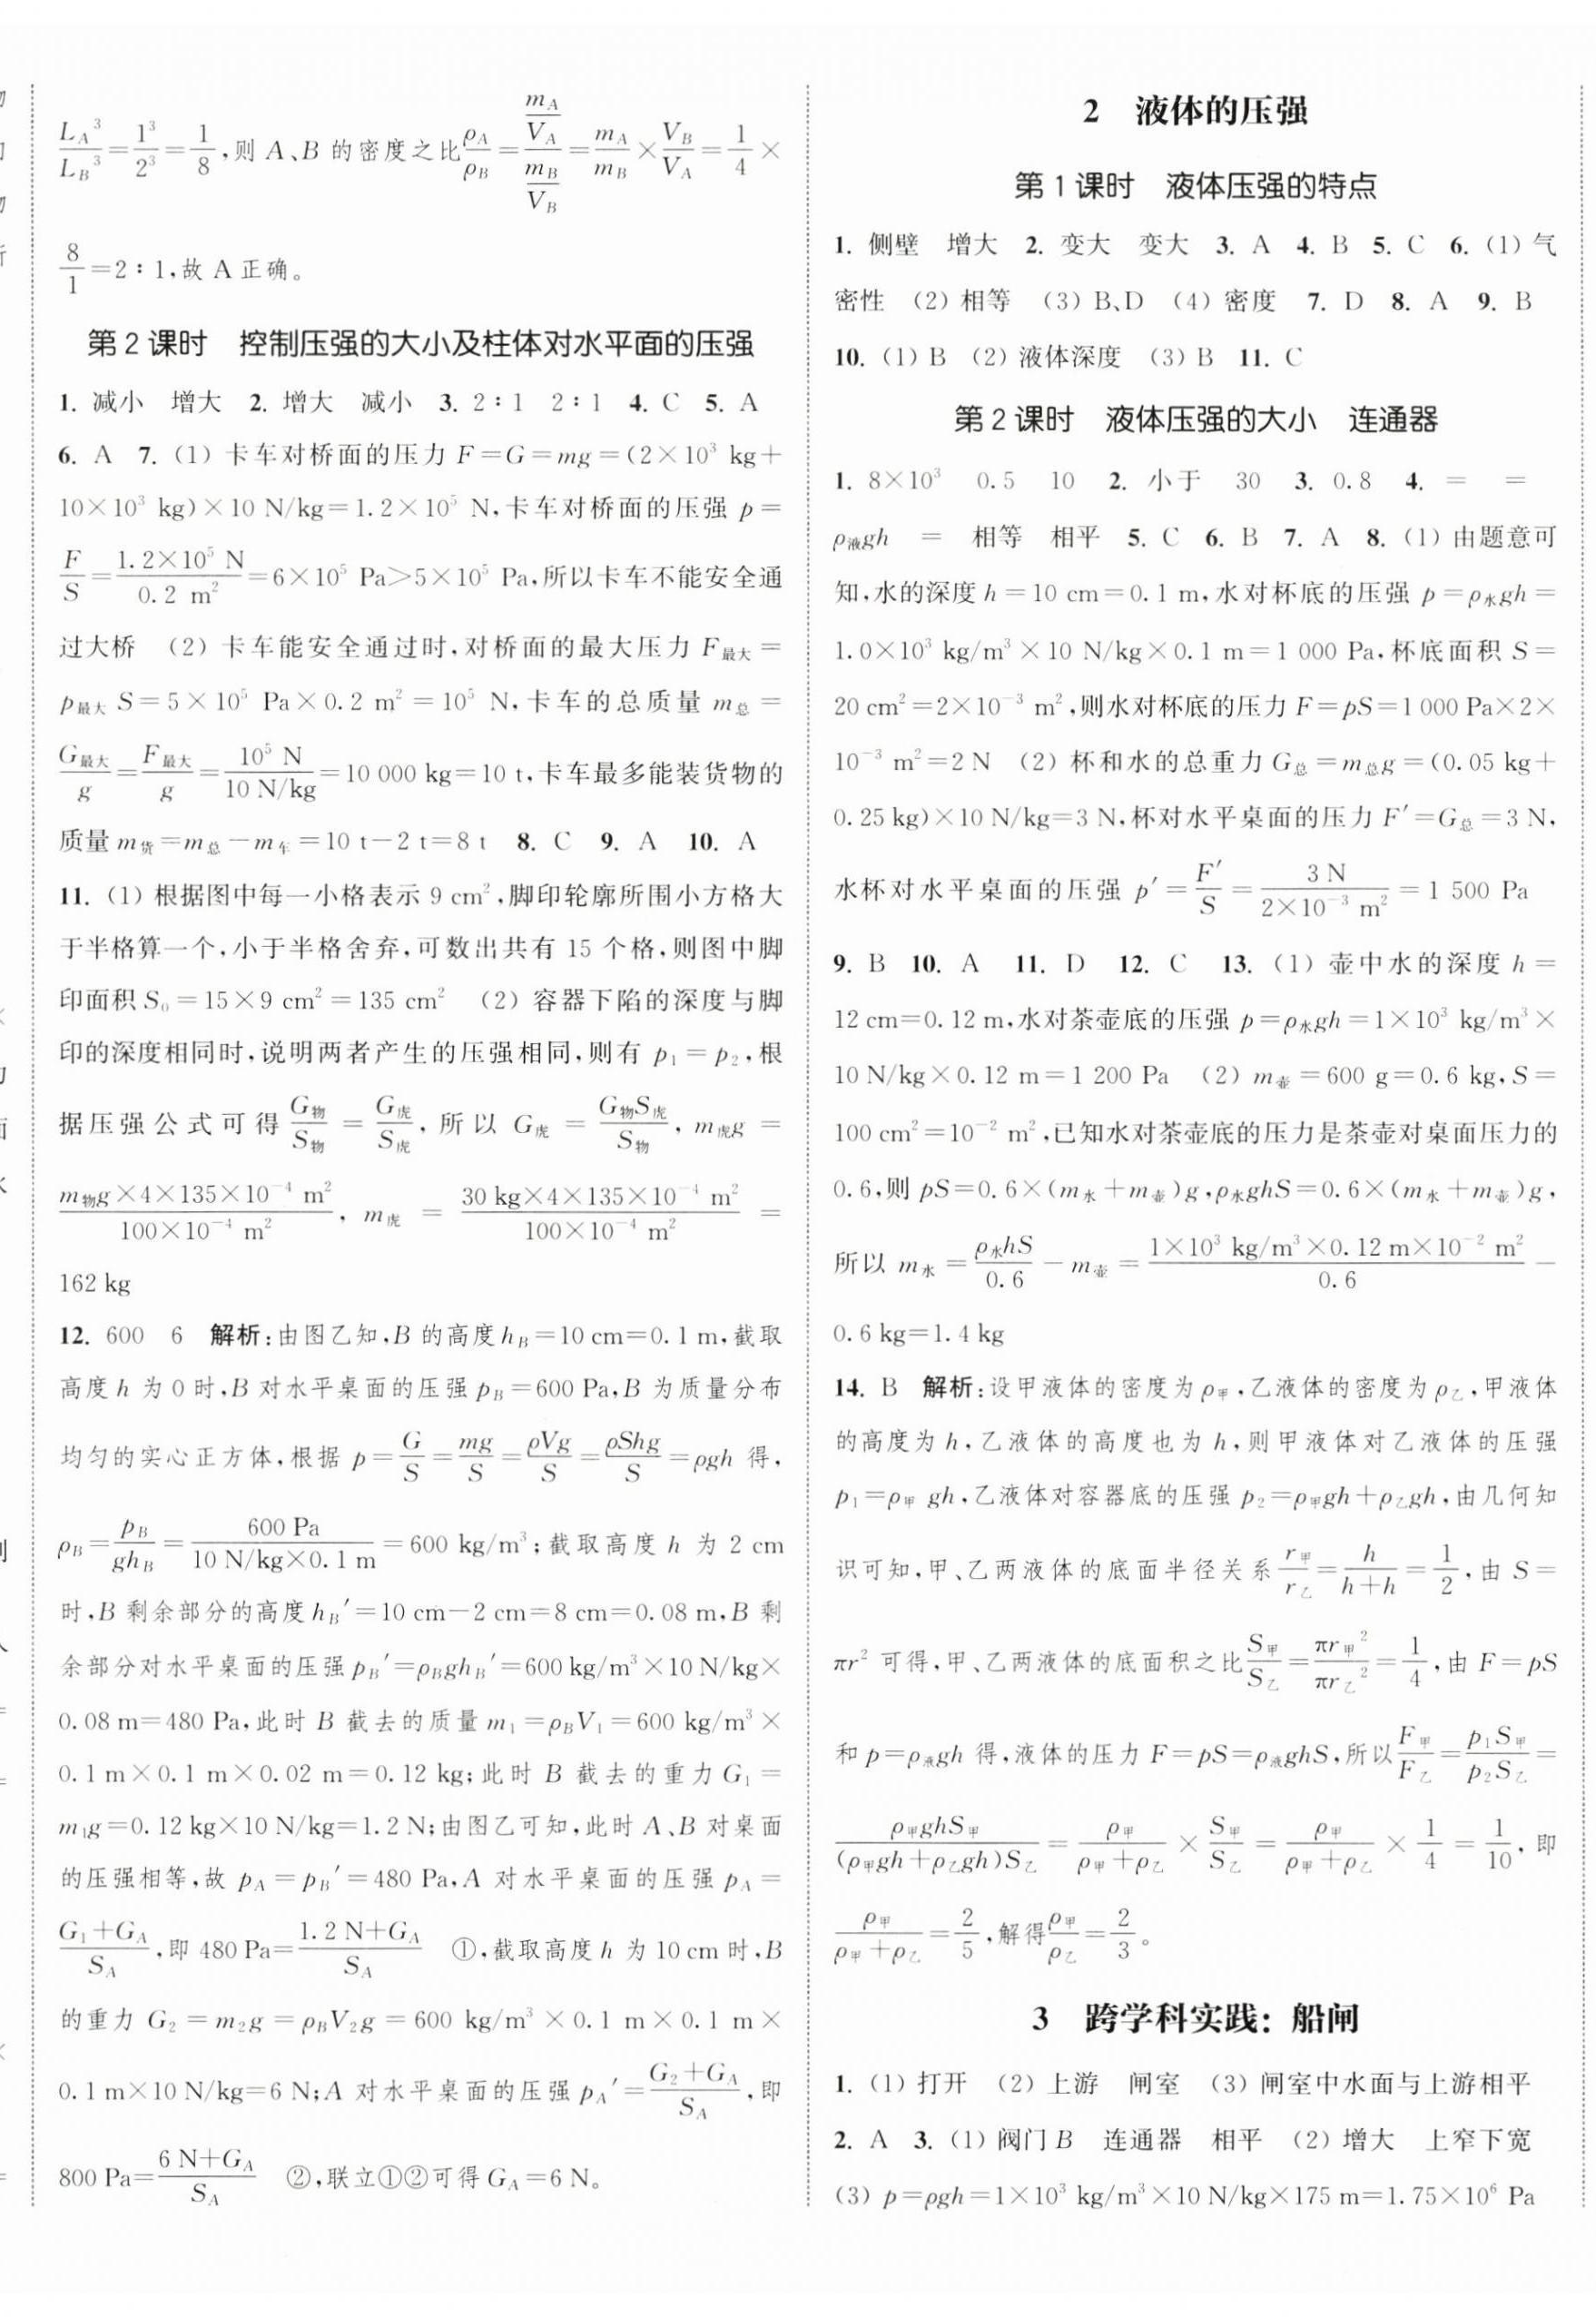 L_A³/L_B³=1³/2³=1/8,则 A、B 的密度之比ρ_A/ρ_B=(m_A/V_A)/(m_B/V_B)=m_A/m_B×V_B/V_A=1/4×
8/1=2∶1,故 A 正确。
第 2 课时　控制压强的大小及柱体对水平面的压强
1. 减小　增大　2. 增大　减小　3. 2∶1　2∶1　4. C　5. A
6. A　7. (1) 卡车对桥面的压力 F=G=mg=(2×10³ kg+
10×10³ kg)×10 N/kg=1.2×10⁵ N,卡车对桥面的压强 p=
F/S=1.2×10⁵ N/0.2 m²=6×10⁵ Pa>5×10⁵ Pa,所以卡车不能安全通
过大桥　(2) 卡车能安全通过时,对桥面的最大压力 F最大=
p最大 S=5×10⁵ Pa×0.2 m²=10⁵ N,卡车的总质量 m总=
G最大/g=F最大/g=10⁵ N/10 N/kg=10 000 kg=10 t,卡车最多能装货物的
质量 m货=m总-m车=10 t-2 t=8 t　8. C　9. A　10. A
11. (1) 根据图中每一小格表示 9 cm²,脚印轮廓所围小方格大
于半格算一个,小于半格舍弃,可数出共有 15 个格,则图中脚
印面积 S₀=15×9 cm²=135 cm²　(2) 容器下陷的深度与脚
印的深度相同时,说明两者产生的压强相同,则有 p₁=p₂,根
据压强公式可得 G物/S物=G虎/S虎,所以 G虎=G物S虎/S物,m虎g=
m物g×4×135×10⁻⁴ m²/100×10⁻⁴ m²,m虎=30 kg×4×135×10⁻⁴ m²/100×10⁻⁴ m²=
162 kg
12. 600　6　解析:由图乙知,B 的高度 h_B=10 cm=0.1 m,截取
高度 h 为 0 时,B 对水平桌面的压强 p_B=600 Pa,B 为质量分布
均匀的实心正方体,根据 p=G/S=mg/S=ρVg/S=ρShg/S=ρgh 得,
ρ_B=p_B/gh_B=600 Pa/10 N/kg×0.1 m=600 kg/m³;截取高度 h 为 2 cm
时,B 剩余部分的高度 h_B′=10 cm-2 cm=8 cm=0.08 m,B 剩
余部分对水平桌面的压强 p_B′=ρ_Bgh_B′=600 kg/m³×10 N/kg×
0.08 m=480 Pa,此时 B 截去的质量 m₁=ρ_BV₁=600 kg/m³×
0.1 m×0.1 m×0.02 m=0.12 kg;此时 B 截去的重力 G₁=
m₁g=0.12 kg×10 N/kg=1.2 N;由图乙可知,此时 A、B 对桌面
的压强相等,故 p_A=p_B′=480 Pa,A 对水平桌面的压强 p_A=
G₁+G_A/S_A,即 480 Pa=1.2 N+G_A/S_A　①,截取高度 h 为 10 cm 时,B
的重力 G₂=m₂g=ρ_BV₂g=600 kg/m³×0.1 m×0.1 m×
0.1 m×10 N/kg=6 N;A 对水平桌面的压强 p_A′=G₂+G_A/S_A,即
800 Pa=6 N+G_A/S_A　②,联立①②可得 G_A=6 N。
2　液体的压强
第 1 课时　液体压强的特点
1. 侧壁　增大　2. 变大　变大　3. A　4. B　5. C　6. (1) 气
密性　(2) 相等　(3) B、D　(4) 密度　7. D　8. A　9. B
10. (1) B　(2) 液体深度　(3) B　11. C
第 2 课时　液体压强的大小　连通器
1. 8×10³　0.5　10　2. 小于　30　3. 0.8　4. =　=
ρ液gh　=　相等　相平　5. C　6. B　7. A　8. (1) 由题意可
知,水的深度 h=10 cm=0.1 m,水对杯底的压强 p=ρ水gh=
1.0×10³ kg/m³×10 N/kg×0.1 m=1 000 Pa,杯底面积 S=
20 cm²=2×10⁻³ m²,则水对杯底的压力 F=pS=1 000 Pa×2×
10⁻³ m²=2 N　(2) 杯和水的总重力 G总=m总g=(0.05 kg+
0.25 kg)×10 N/kg=3 N,杯对水平桌面的压力 F′=G总=3 N,
水杯对水平桌面的压强 p′=F′/S=3 N/2×10⁻³ m²=1 500 Pa
9. B　10. A　11. D　12. C　13. (1) 壶中水的深度 h=
12 cm=0.12 m,水对茶壶底的压强 p=ρ水gh=1×10³ kg/m³×
10 N/kg×0.12 m=1 200 Pa　(2) m壶=600 g=0.6 kg,S=
100 cm²=10⁻² m²,已知水对茶壶底的压力是茶壶对桌面压力的
0.6,则 pS=0.6×(m水+m壶)g,ρ水ghS=0.6×(m水+m壶)g,
所以 m水=ρ水hS/0.6-m壶=1×10³ kg/m³×0.12 m×10⁻² m²/0.6-
0.6 kg=1.4 kg
14. B　解析:设甲液体的密度为 ρ甲,乙液体的密度为 ρ乙,甲液体
的高度为 h,乙液体的高度也为 h,则甲液体对乙液体的压强
p₁=ρ甲 gh,乙液体对容器底的压强 p₂=ρ甲gh+ρ乙gh,由几何知
识可知,甲、乙两液体的底面半径关系 r甲/r乙=h/h+h=1/2,由 S=
πr² 可得,甲、乙两液体的底面积之比S甲/S乙=πr甲²/πr乙²=1/4,由 F=pS
和 p=ρ液gh 得,液体的压力 F=pS=ρ液ghS,所以F甲/F乙=p₁S甲/p₂S乙=
ρ甲ghS甲/(ρ甲gh+ρ乙gh)S乙=ρ甲/ρ甲+ρ乙×S甲/S乙=ρ甲/ρ甲+ρ乙×1/4=1/10,即
ρ甲/ρ甲+ρ乙=2/5,解得ρ甲/ρ乙=2/3。
3　跨学科实践:船闸
1. (1) 打开　(2) 上游　闸室　(3) 闸室中水面与上游相平
2. A　3. (1) 阀门 B　连通器　相平　(2) 增大　上窄下宽
(3) p=ρgh=1×10³ kg/m³×10 N/kg×175 m=1.75×10⁶ Pa